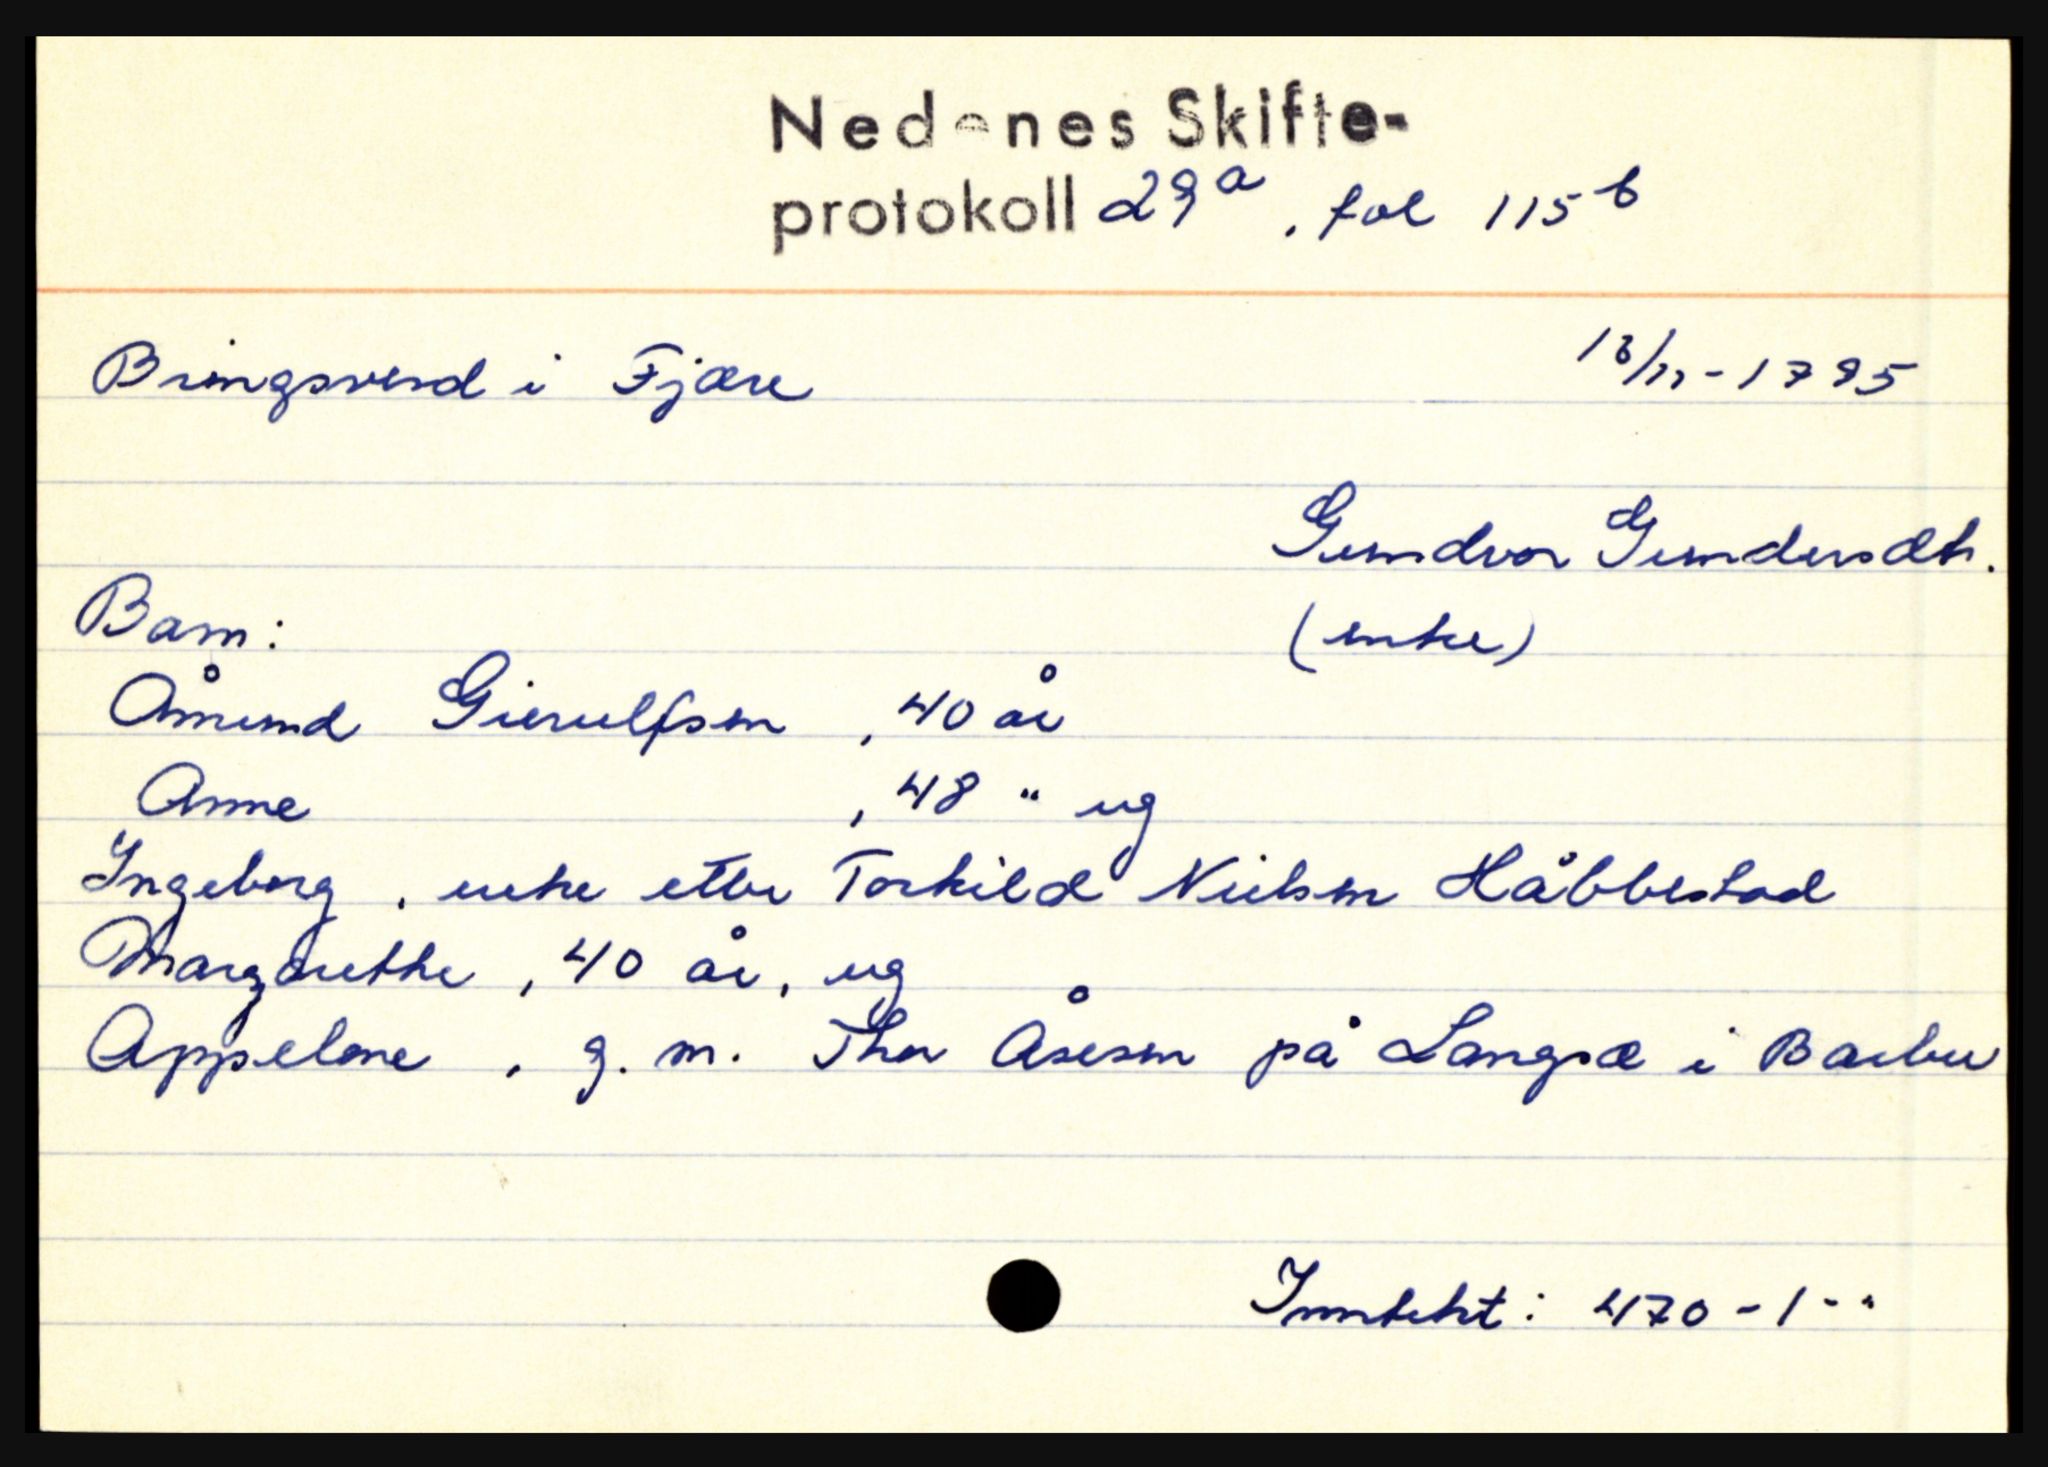 Nedenes Skifte-
protokoll 29a, fol 115b
Bringsverd i Fjære 18/11-1795
Gundvor Gundersdtr.
Barn: (enke)
Åmund Gierulfsen, 40 år
Anne, 48 " ug
Ingeborg, enke etter Torkild Nielsen Håbbestad
Margarethe, 40 år, ug
Appelone, g. m. Thor Åsesen på Langsæ i Barbu
Inntekt: 470-1-"